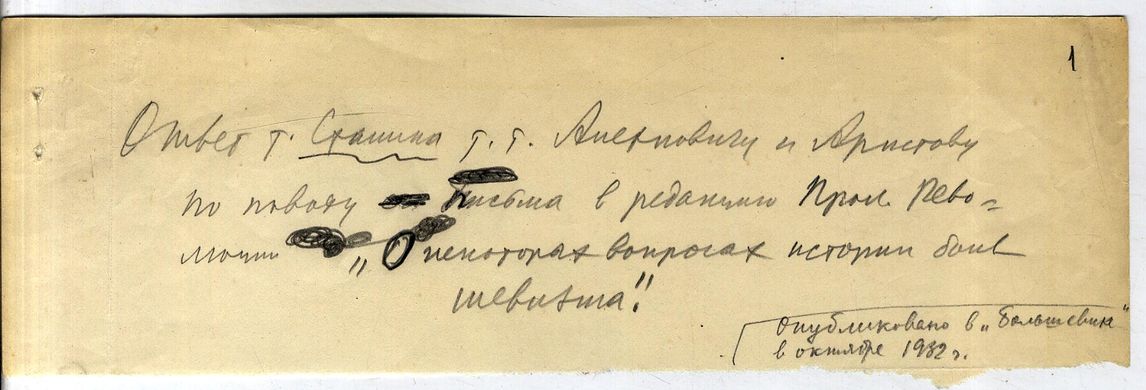 1
Ответ т. Сталина т.т. Алехновичу и Аристову
по поводу письма в редакцию Прол. Рево=
люции „О некоторых вопросах истории боль
шевизма".
Опубликовано в „Большевик"
в октябре 1932 г.